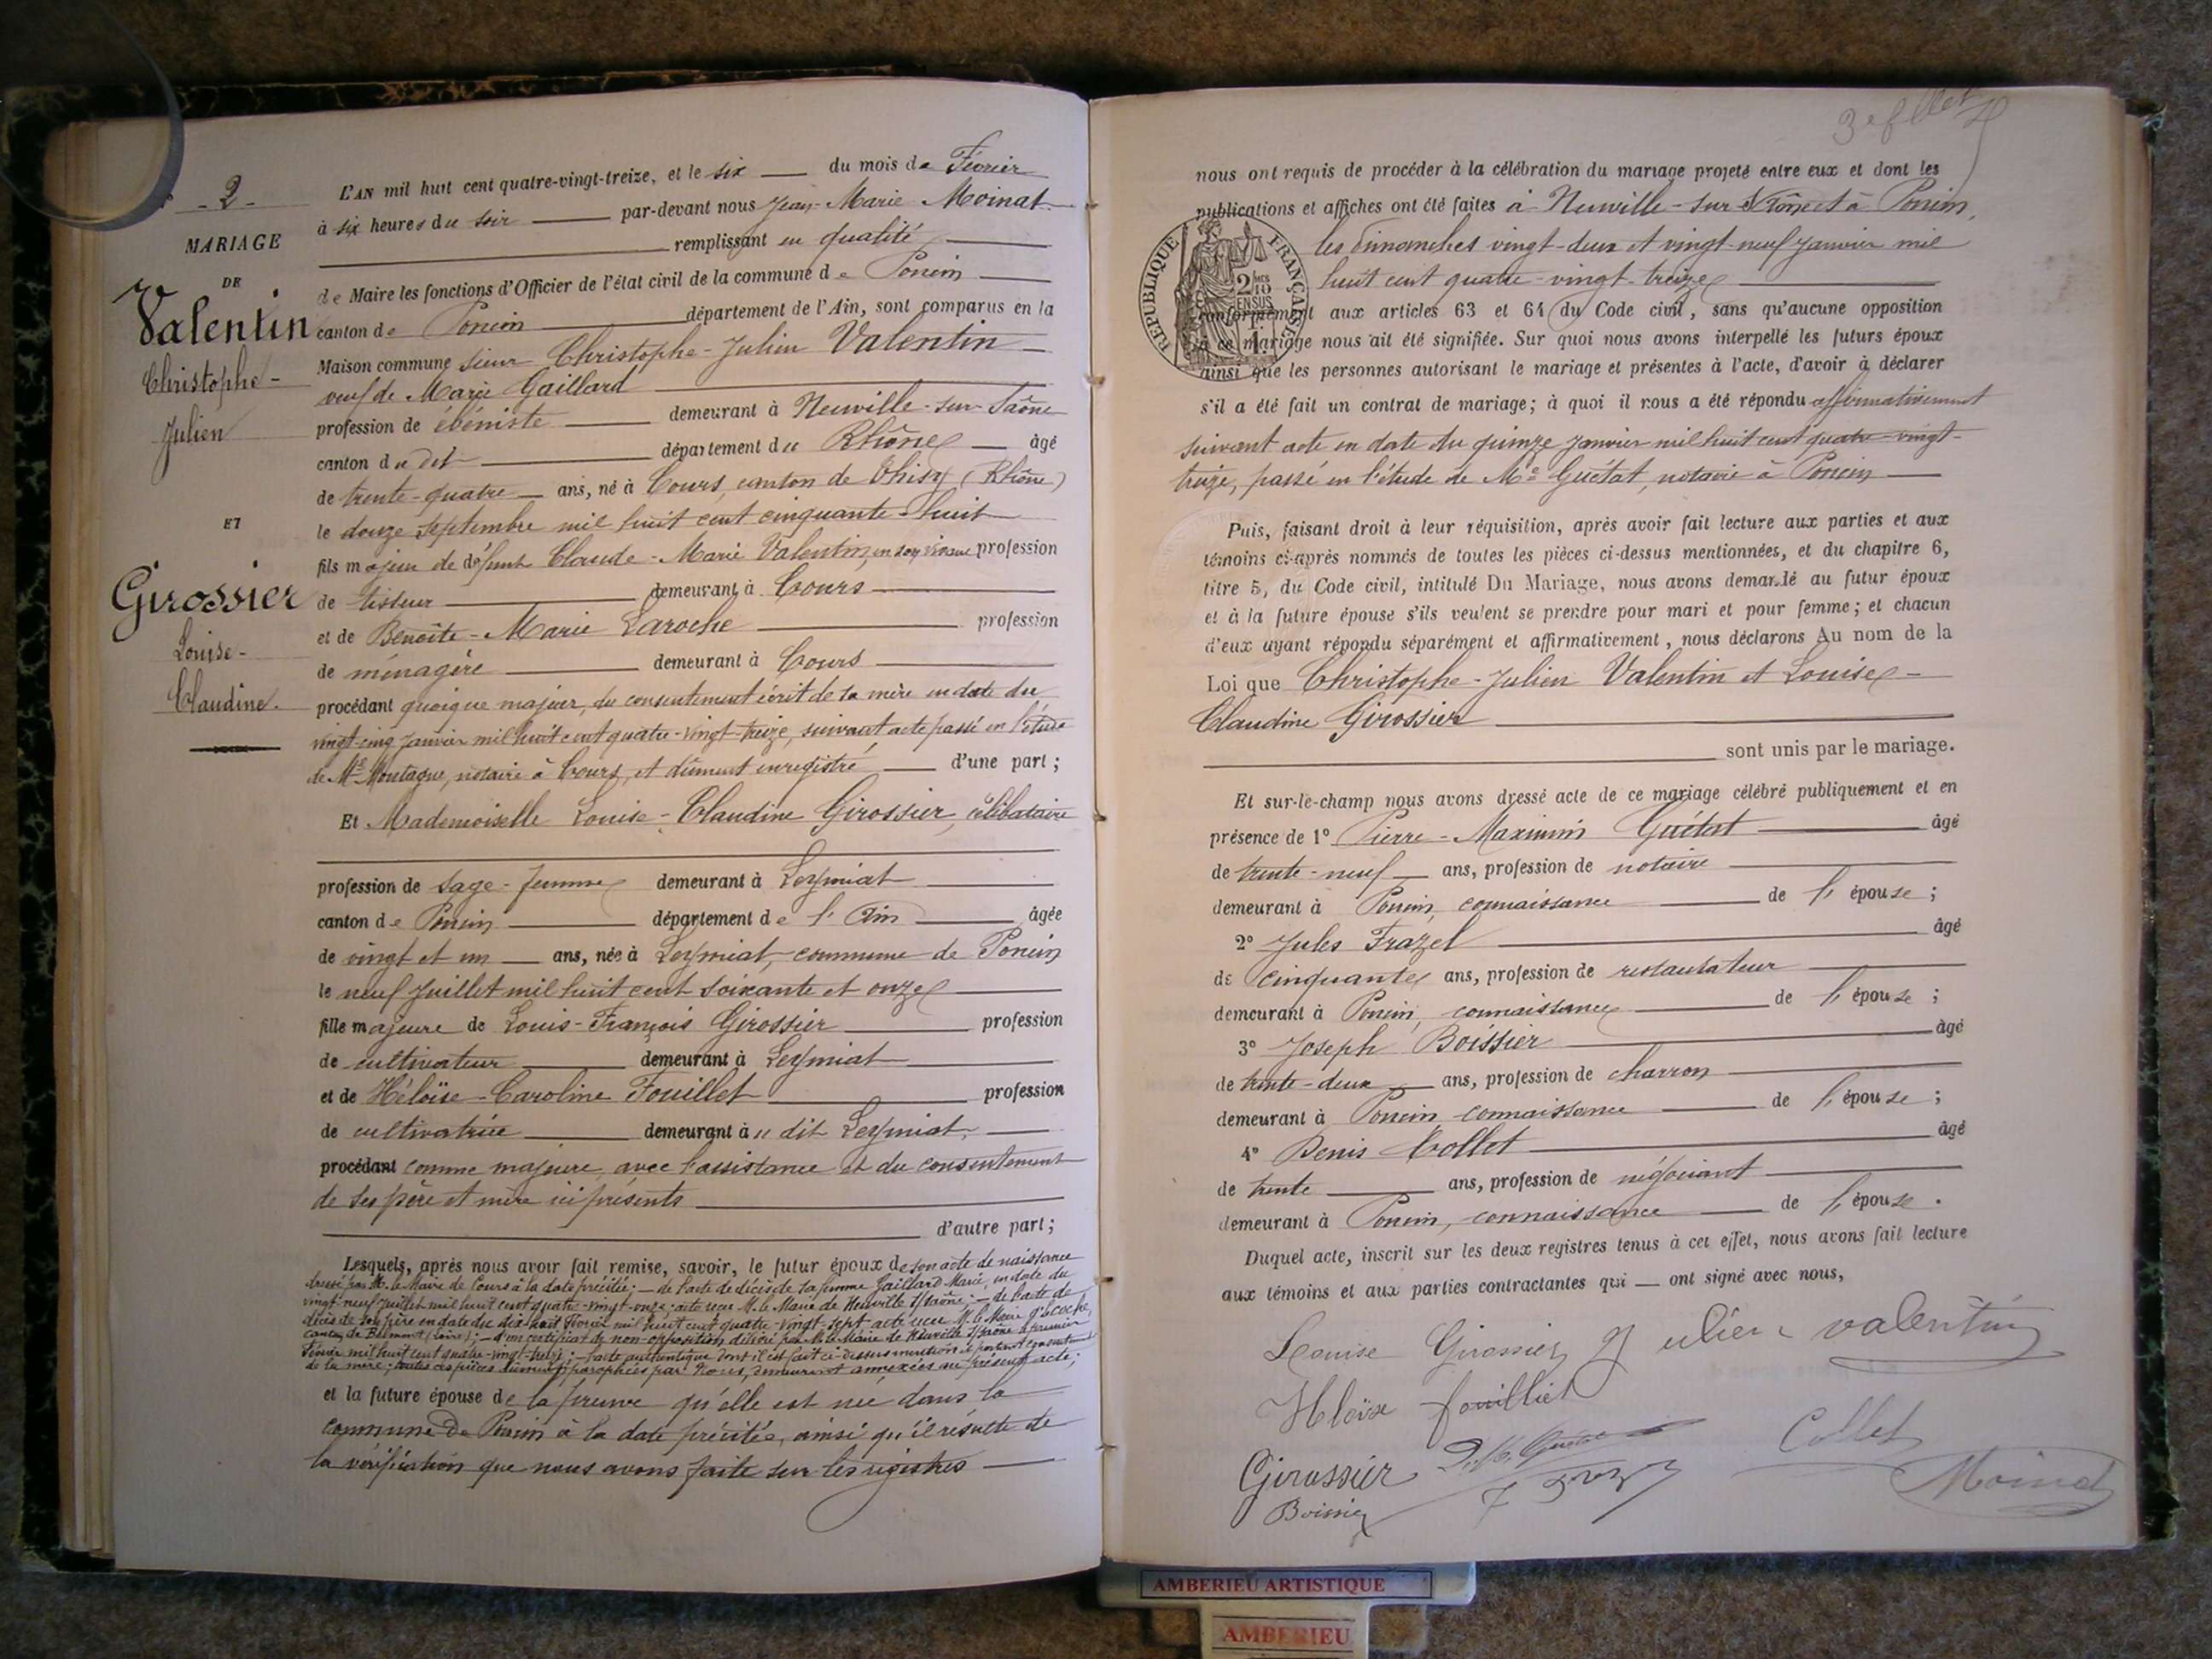 - 2 -
MARIAGE
DE
Valentin
Christophe-
Julien
ET
Girossier
Louise-
Claudine.
L'AN mil huit cent quatre-vingt-treize, et le six du mois de Février
à six heures du soir par-devant nous Jean-Marie Moinat
remplissant en qualité
de Maire les fonctions d'Officier de l'état civil de la commune de Poncin
canton de Poncin département de l'Ain, sont comparus en la
Maison commune sieur Christophe-Julien Valentin
veuf de Marie Gaillard
profession de ébéniste demeurant à Neuville-sur-Saône
canton du dit département du Rhône âgé
de trente-quatre ans, né à Cours, canton de Thisy (Rhône)
le douze septembre mil huit cent cinquante-huit
fils majeur de défunt Claude-Marie Valentin, en son vivant profession
de tisseur demeurant à Cours
et de Benoîte-Marie Laroche profession
de ménagère demeurant à Cours
procédant quoique majeur, du consentement écrit de sa mère en date du
vingt-cinq Janvier mil huit cent quatre-vingt-treize, suivant acte passé en l'étude
de Me Montagne, notaire à Cours, et dûment enregistré d'une part ;
Et Mademoiselle Louise-Claudine Girossier, célibataire
profession de sage-femme demeurant à Leymiat
canton de Poncin département de l'Ain âgée
de vingt et un ans, née à Leymiat, commune de Poncin
le neuf Juillet mil huit cent soixante et onze
fille majeure de Louis-François Girossier profession
de cultivateur demeurant à Leymiat
et de Héloïse-Caroline Fouillet profession
de cultivatrice demeurant à u dit Leymiat,
procédant comme majeure, avec l'assistance et du consentement
de ses père et mère ici présents
d'autre part ;
Lesquels, après nous avoir fait remise, savoir, le futur époux de son acte de naissance
dressé par M. le Maire de Cours à la date précitée ; - de l'acte de décès de sa femme Gaillard Marie, en date du
vingt-neuf Juillet mil huit cent quatre-vingt-onze, acte reçu M. le Maire de Neuville s/Saône ; - de l'acte de
décès de son père en date du dix-huit Février mil huit cent quatre-vingt-sept acte reçu M. le Maire d'Ecoche,
canton de Belmont (Loire) ; - d'un certificat de non-opposition délivré par M. le Maire de Neuville s/Saône le premier
Février mil huit cent quatre-vingt-treize ; - l'acte authentique dont il est fait ci-dessus mention et portant consentement
de la mère ; toutes ces pièces dûment paraphées par Nous, demeurent annexées au présent acte ;
et la future épouse de la preuve qu'elle est née dans la
commune de Poncin à la date précitée, ainsi qu'il résulte de
la vérification que nous avons faite sur les registres
nous ont requis de procéder à la célébration du mariage projeté entre eux et dont les
publications et affiches ont été faites à Neuville-sur-Saône et à Poncin,
les dimanches vingt-deux et vingt-neuf Janvier mil
huit cent quatre-vingt-treize
RÉPUBLIQUE FRANÇAISE
conformément aux articles 63 et 64 du Code civil, sans qu'aucune opposition
à ce mariage nous ait été signifiée. Sur quoi nous avons interpellé les futurs époux
ainsi que les personnes autorisant le mariage et présentes à l'acte, d'avoir à déclarer
s'il a été fait un contrat de mariage ; à quoi il nous a été répondu affirmativement
suivant acte en date du quinze Janvier mil huit cent quatre-vingt-
treize, passé en l'étude de Me Guétat, notaire à Poncin
Puis, faisant droit à leur réquisition, après avoir fait lecture aux parties et aux
témoins ci-après nommés de toutes les pièces ci-dessus mentionnées, et du chapitre 6,
titre 5, du Code civil, intitulé Du Mariage, nous avons demandé au futur époux
et à la future épouse s'ils veulent se prendre pour mari et pour femme ; et chacun
d'eux ayant répondu séparément et affirmativement, nous déclarons Au nom de la
Loi que Christophe-Julien Valentin et Louise-
Claudine Girossier
sont unis par le mariage.
Et sur-le-champ nous avons dressé acte de ce mariage célébré publiquement et en
présence de 1° Pierre-Maximin Guétat âgé
de trente-neuf ans, profession de notaire
demeurant à Poncin, connaissance de l'épouse ;
2° Jules Frazel âgé
de cinquante ans, profession de restaurateur
demeurant à Poncin, connaissance de l'épouse ;
3° Joseph Boissier âgé
de trente-deux ans, profession de charron
demeurant à Poncin, connaissance de l'épouse ;
4° Denis Collet âgé
de trente ans, profession de négociant
demeurant à Poncin, connaissance de l'épouse.
Duquel acte, inscrit sur les deux registres tenus à cet effet, nous avons fait lecture
aux témoins et aux parties contractantes qui ont signé avec nous,
Louise Girossier Julien valentin
Heloïse fouilliet
Collet
Girossier
Moinat
Boissier
AMBERIEU ARTISTIQUE
AMBERIEU